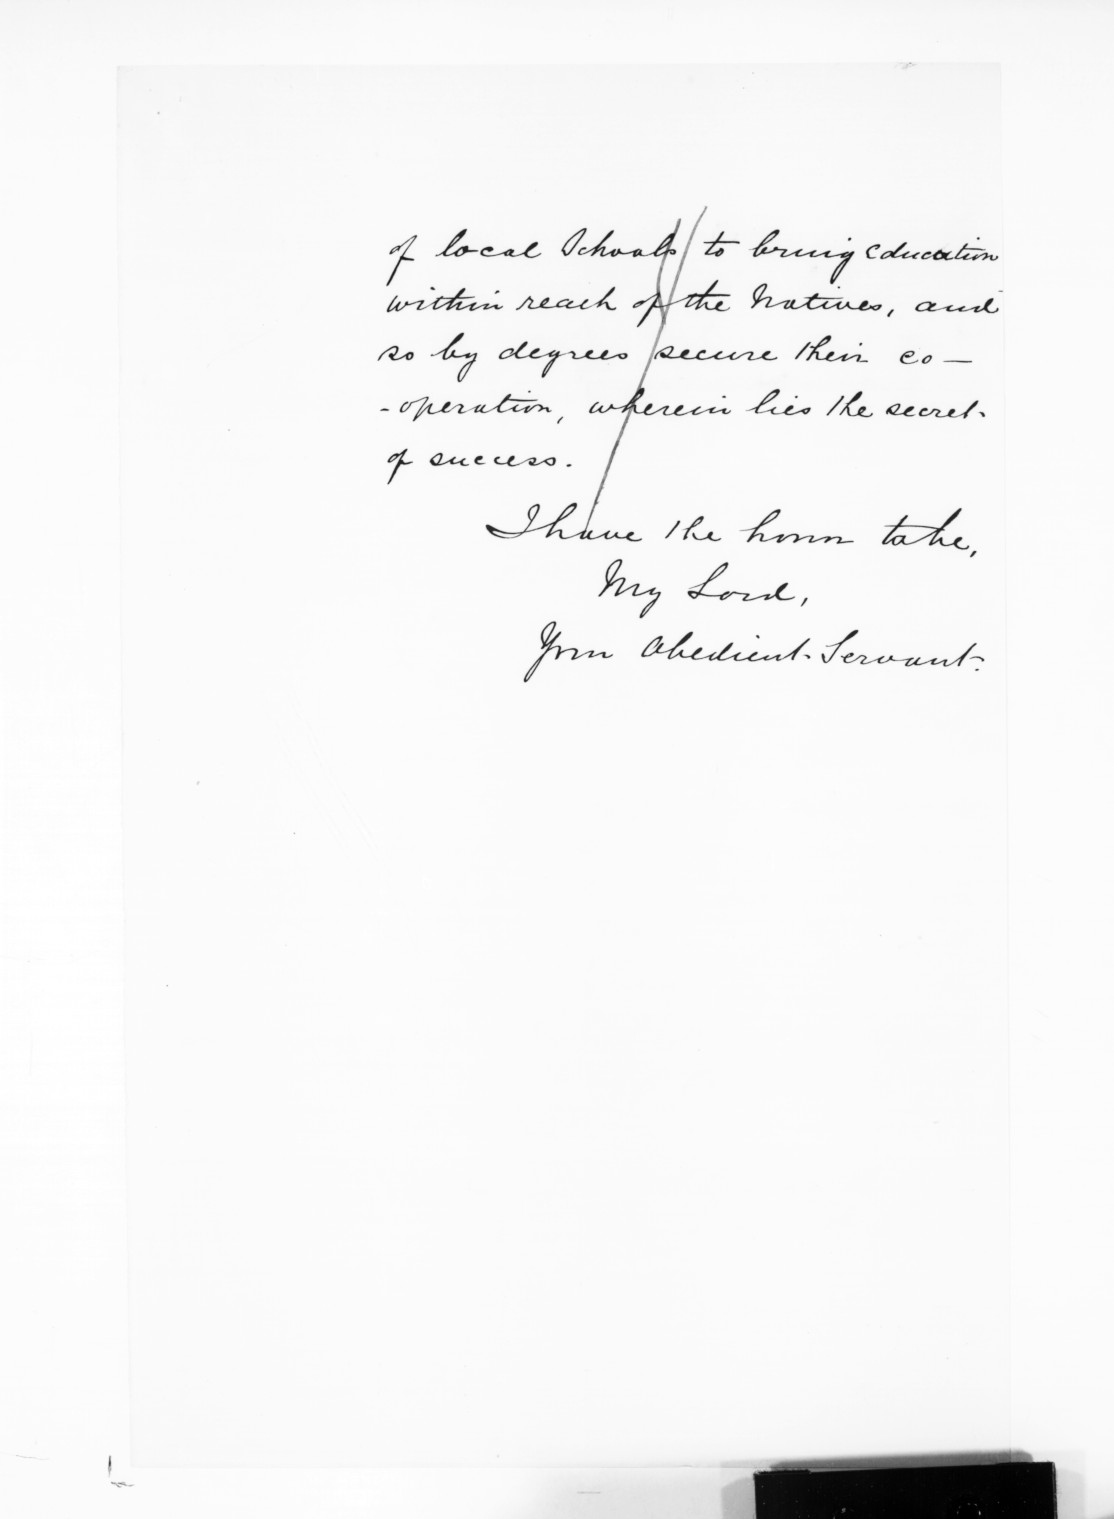 of local Schools to bring Education
within reach of the Natives, and
so by degrees secure their co—
-operation, wherein lies the secret
of success.
I have the honor to be,
My Lord,
Your Obedient Servant.